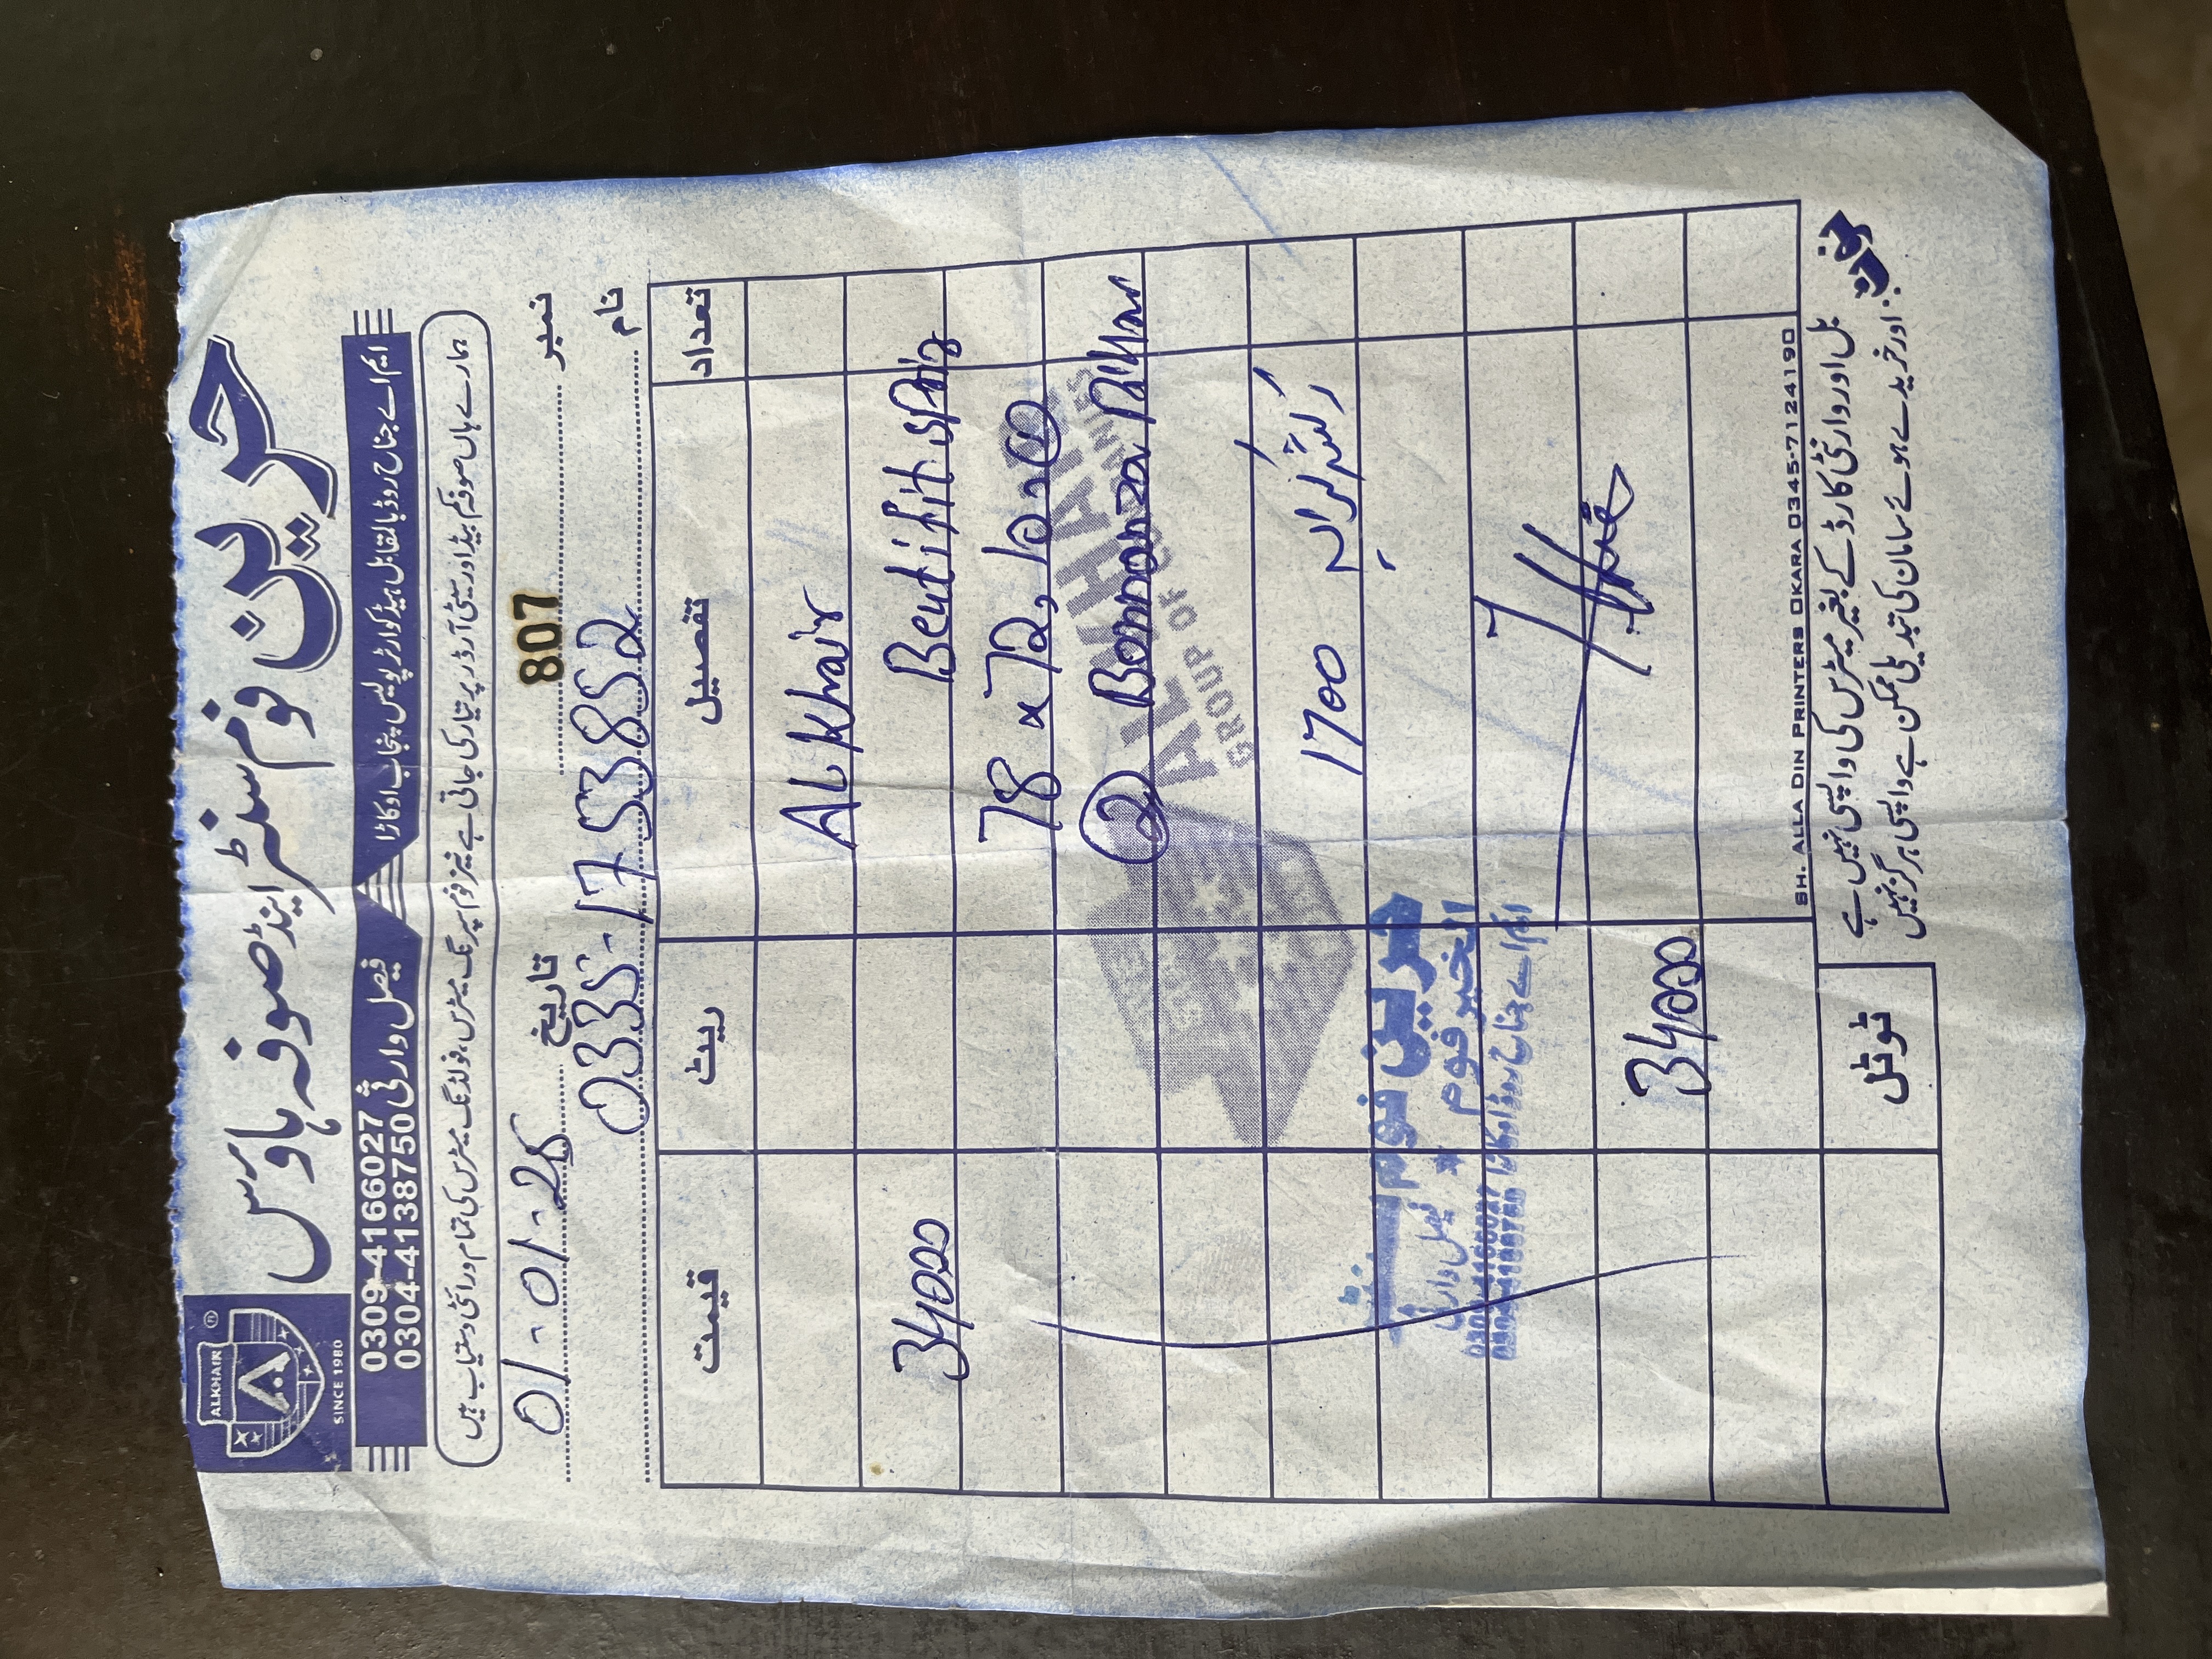 ALKHAIR ®
SINCE 1980
حرین فوم سنٹر اینڈ صوفہ ہاوس
ایم اے جناح روڈ بالمقابل ہیڈ کوارٹر پولیس پنجاب اوکاڑا
فیصل وارثی
0309-4166027
0304-4138750
ہمارے ہاں صوفہ کم بیڈ اور سیٹی آرڈر پر تیار کی جاتی ہے نیز فوم سپرنگ میٹرس، فولڈنگ میٹرس کی تمام ورائٹی دستیاب ہیں
نمبر 807 تاریخ 01-01-25
نام 0335-1753852
تعداد تفصیل ریٹ قیمت
ALKhair
34000
78 x 72, 10
2 Bonnanza Pillow
AL-KHAIR
GROUP OF COMPANIES
1700
حرین فوم سنٹر
الخیر فوم * فیصل وارثی
ایم اے جناح روڈ اوکاڑا
34000
SH. ALLA DIN PRINTERS OKARA 0345-7124190
ٹوٹل
نوٹ: بل اور وارنٹی کارڈ کے بغیر میٹرس کی واپسی نہیں ہے
اور خریدے ہوئے سامان کی تبدیلی ممکن ہے واپسی ہرگز نہیں